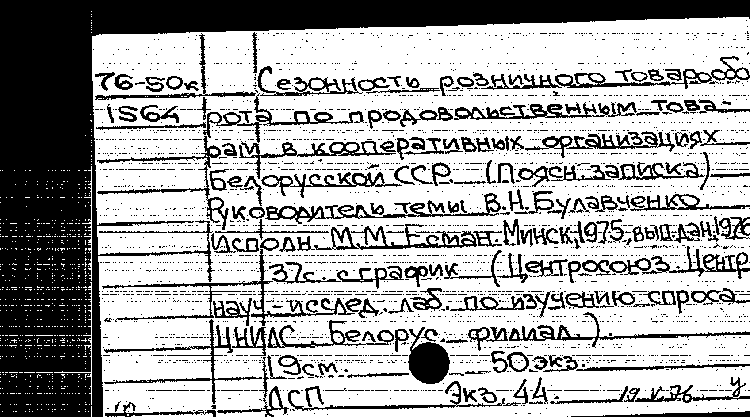 76-50к Сезонность розничного товарообо
1564 рота по продовольственным това-
рам в кооперативных организациях
Белорусской ССР. (Поясн. записка)
Руководитель темы В.Н. Булавченко.
Исполн. М.М. Есман. Минск, 1975, вып. дан. 1976
37с. с график (Центросоюз. Центр.
науч.-исслед. лаб. по изучению спроса
ЦНИЛС. Белорус. филиал.).
19см. 50 экз.
ДСП Экз. 44. 19 V. 76 у